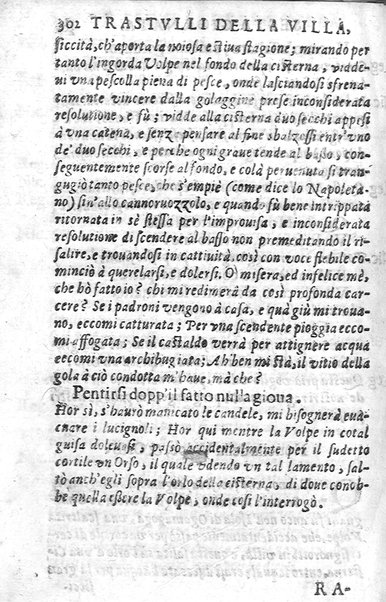 302 TRASTVLLI DELLA VILLA,
siccità, ch'aporta la noiosa estiua stagione; mirando per
tanto l'ingorda Volpe nel fondo della cisterna, vidde-
ui vna pescolla piena di pesce, onde lasciandosi sfrena-
tamente vincere dalla golaggine prese inconsiderata
resolutione, e fù; vidde alla cisterna duo secchi appesi
à vna catena, e senza pensare al fine sbalzossi entr'vno
de' duo secchi, e perche ogni graue tende al basso, con-
seguentemente scorse al fondo, e colà peruenuta si tran-
gugiò tanto pesce, che s'empiè (come dice lo Napoleta-
no) sin'allo cannoruozzolo, e quando fù bene intrippata
ritornata in sè stessa per l'improuisa, e inconsiderata
resolutione di scendere al basso non premeditando il ri-
salire, e trouandosi in cattiuità, così con voce flebile co-
minciò à querelarsi, e dolersi. O misera, ed infelice mè,
che hò fatto io? chi mi redimerà da così profonda car-
cere? Se i padroni vengono à casa, e quà giù mi troua-
no, eccomi catturata; Per vna scendente pioggia ecco-
mi affogata; Se il castaldo verrà per attignere acqua
eccomi vna archibugiata; Ah ben mi stà, il vitio della
gola à ciò condotta m'haue, mà che?
Pentirsi dopp'il fatto nulla gioua.
Hor sì, s'haurò manicato le candele, mi bisognerà eua-
cuare i lucignoli; Hor qui mentre la Volpe in cotal
guisa doleuasi, passò accidentalmente per il sudetto
cortile vn Orso, il quale vdendo vn tal lamento, sal-
tò anch'egli sopra l'orlo della cisterna, di doue conob-
be quella essere la Volpe, onde così l'interrogò.
RA-